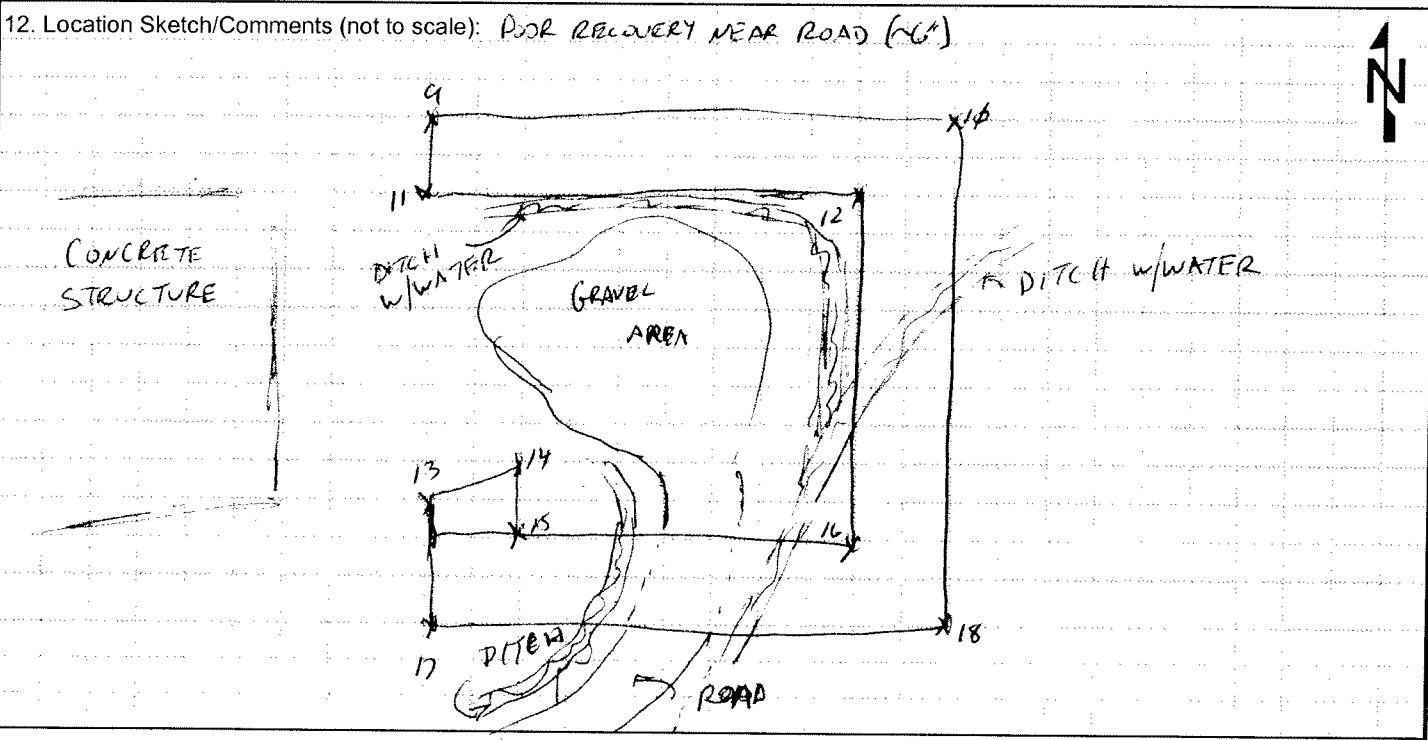 12. Location Sketch/Comments (not to scale): POOR RECOVERY NEAR ROAD (~6")
N
9
10
11
12
CONCRETE
STRUCTURE
DITCH
W/WATER
GRAVEL
AREA
DITCH W/WATER
13
14
15
16
17
DITCH
18
ROAD